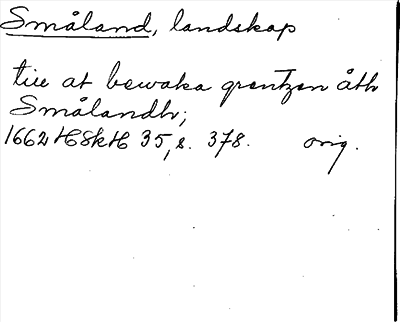 Småland, landskap
till at bewaka grentzen åth
Smålandh;
1662 HSkH 35, s. 378. orig.